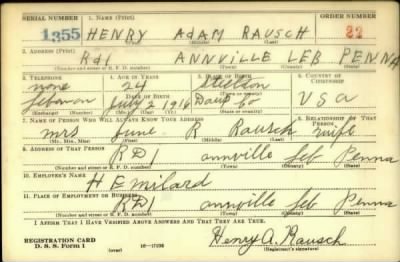 SERIAL NUMBER 1. NAME (Print) ORDER NUMBER
1355 HENRY ADAM RAUSCH 22
(First) (Middle) (Last)
2. ADDRESS (Print)
Rd1 ANNVILLE LEB PENNA
(Number and street or R. F. D. number) (Town) (County) (State)
3. TELEPHONE 4. AGE IN YEARS 5. PLACE OF BIRTH 6. COUNTRY OF CITIZENSHIP
none 24 Steelton
DATE OF BIRTH (Town or county)
Lebanon July 2 1916 Daup Co USA
(Exchange) (Number) (Mo.) (Day) (Yr.) (State or country)
7. NAME OF PERSON WHO WILL ALWAYS KNOW YOUR ADDRESS 8. RELATIONSHIP OF THAT PERSON
mrs June R Rausch wife
(Mr., Mrs., Miss) (First) (Middle) (Last)
9. ADDRESS OF THAT PERSON
RD1 annville Leb Penna
(Number and street or R. F. D. number) (Town) (County) (State)
10. EMPLOYER'S NAME
H E Milard
11. PLACE OF EMPLOYMENT OR BUSINESS
RD1 annville Leb Penna
(Number and street or R. F. D. number) (Town) (County) (State)
I AFFIRM THAT I HAVE VERIFIED ABOVE ANSWERS AND THAT THEY ARE TRUE.
REGISTRATION CARD
D. S. S. Form 1 (over) 16-17105 Henry A. Rausch
(Registrant's signature)